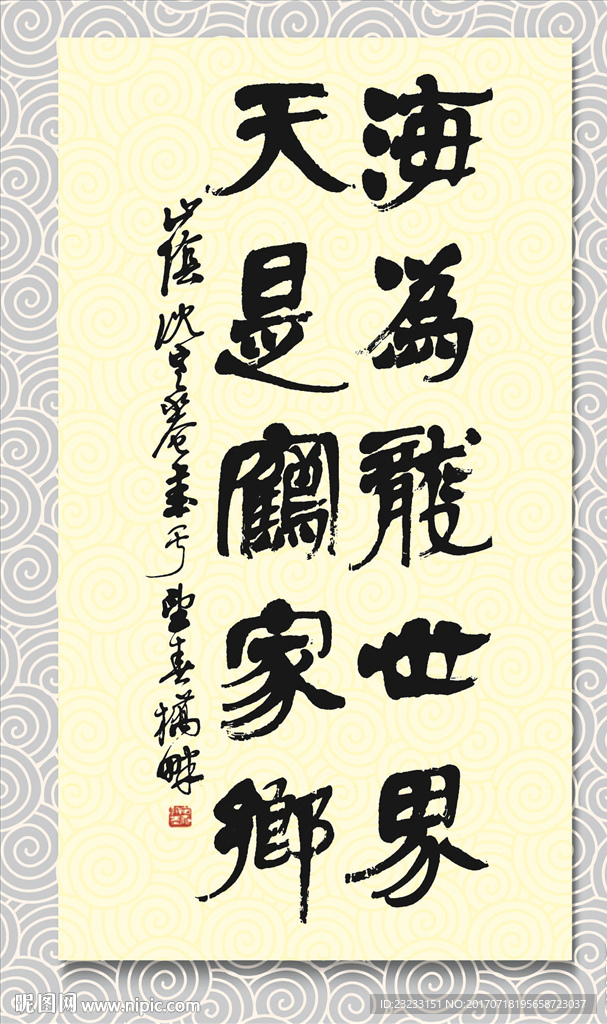 海為龍世界
天是鶴家鄉
山陰沈定庵書于望春橋畔
昵图网 www.nipic.com
ID:23233151 NO:20170718195658723037